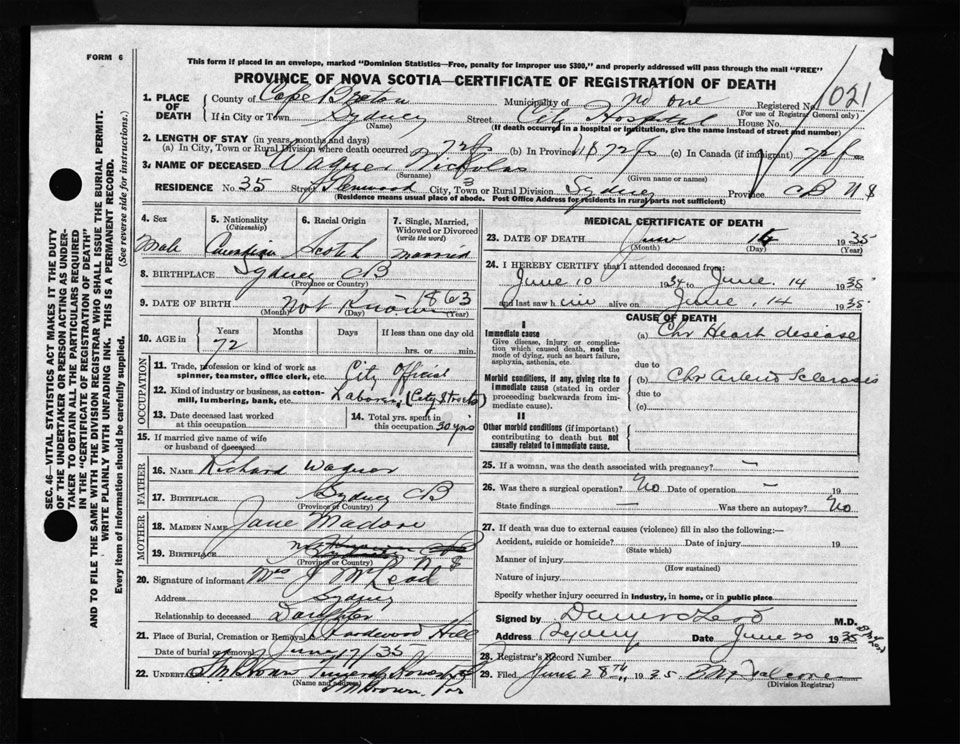 FORM 6
This form if placed in an envelope, marked "Dominion Statistics—Free, penalty for improper use $300," and properly addressed will pass through the mail "FREE"
PROVINCE OF NOVA SCOTIA—CERTIFICATE OF REGISTRATION OF DEATH
1021
1. PLACE OF DEATH
County of Cape Breton Municipality of No one Registered No.
(For use of Registrar General only)
If in City or Town Sydney Street City Hospital House No.
(Name) (If death occurred in a hospital or institution, give the name instead of street and number)
2. LENGTH OF STAY (in years, months and days)
(a) In City, Town or Rural Division where death occurred 72 (b) In Province 72 (c) In Canada (if immigrant) 72
3. NAME OF DECEASED Wagner Nicholas
(Surname) (Given name or names)
RESIDENCE No. 35 Street Glenwood City, Town or Rural Division Sydney Province CB NS
(Residence means usual place of abode. Post Office Address for residents in rural parts not sufficient)
4. Sex Male
5. Nationality (Citizenship) Canadian
6. Racial Origin Scotch
7. Single, Married, Widowed or Divorced (write the word) Married
8. BIRTHPLACE Sydney CB
(Province or Country)
9. DATE OF BIRTH Not Known 1863
(Month) (Day) (Year)
10. AGE in Years Months Days If less than one day old
72 hrs. or min.
OCCUPATION
11. Trade, profession or kind of work as spinner, teamster, office clerk, etc. City Official
12. Kind of industry or business, as cotton-mill, lumbering, bank, etc. Laborer (City Streets)
13. Date deceased last worked at this occupation
14. Total yrs. spent in this occupation 30 yrs
15. If married give name of wife or husband of deceased
FATHER
16. NAME Richard Wagner
17. BIRTHPLACE Sydney CB
(Province or Country)
MOTHER
18. MAIDEN NAME Jane
19. BIRTHPLACE
(Province or Country)
20. Signature of informant Mrs J McLeod
Address Sydney
Relationship to deceased Daughter
21. Place of Burial, Cremation or Removal Hardwood Hill
Date of burial or removal June 17/35
22. UNDERTAKER
(Name and address)
MEDICAL CERTIFICATE OF DEATH
23. DATE OF DEATH June 1935
(Month) (Day) (Year)
24. I HEREBY CERTIFY that I attended deceased from:
June 10 1934 to June 14 1935
and last saw him alive on June 14 1935
CAUSE OF DEATH
I
Immediate cause
Give disease, injury or complication which caused death, not the mode of dying, such as heart failure, asphyxia, asthenia, etc.
(a) Chr Heart desease
due to
Morbid conditions, if any, giving rise to immediate cause (stated in order proceeding backwards from immediate cause).
(b) Chr Arterio Sclerosis
due to
(c)
II
Other morbid conditions (if important) contributing to death but not causally related to immediate cause.
25. If a woman, was the death associated with pregnancy? —
26. Was there a surgical operation? No Date of operation — 19
State findings — Was there an autopsy? No
27. If death was due to external causes (violence) fill in also the following:—
Accident, suicide or homicide? Date of injury 19
(State which)
Manner of injury
(How sustained)
Nature of injury
Specify whether injury occurred in industry, in home, or in public place
Signed by M.D.
Address Sydney Date June 20 1935
28. Registrar's Record Number
29. Filed June 28th 1935
(Division Registrar)
SEC. 46—VITAL STATISTICS ACT MAKES IT THE DUTY
OF THE UNDERTAKER OR PERSON ACTING AS UNDER-
TAKER TO OBTAIN ALL THE PARTICULARS REQUIRED
IN THE "CERTIFICATE OF REGISTRATION OF DEATH"
AND TO FILE THE SAME WITH THE DIVISION REGISTRAR WHO SHALL ISSUE THE BURIAL PERMIT.
WRITE PLAINLY WITH UNFADING INK. THIS IS A PERMANENT RECORD.
Every item of information should be carefully supplied. (See reverse side for instructions.)